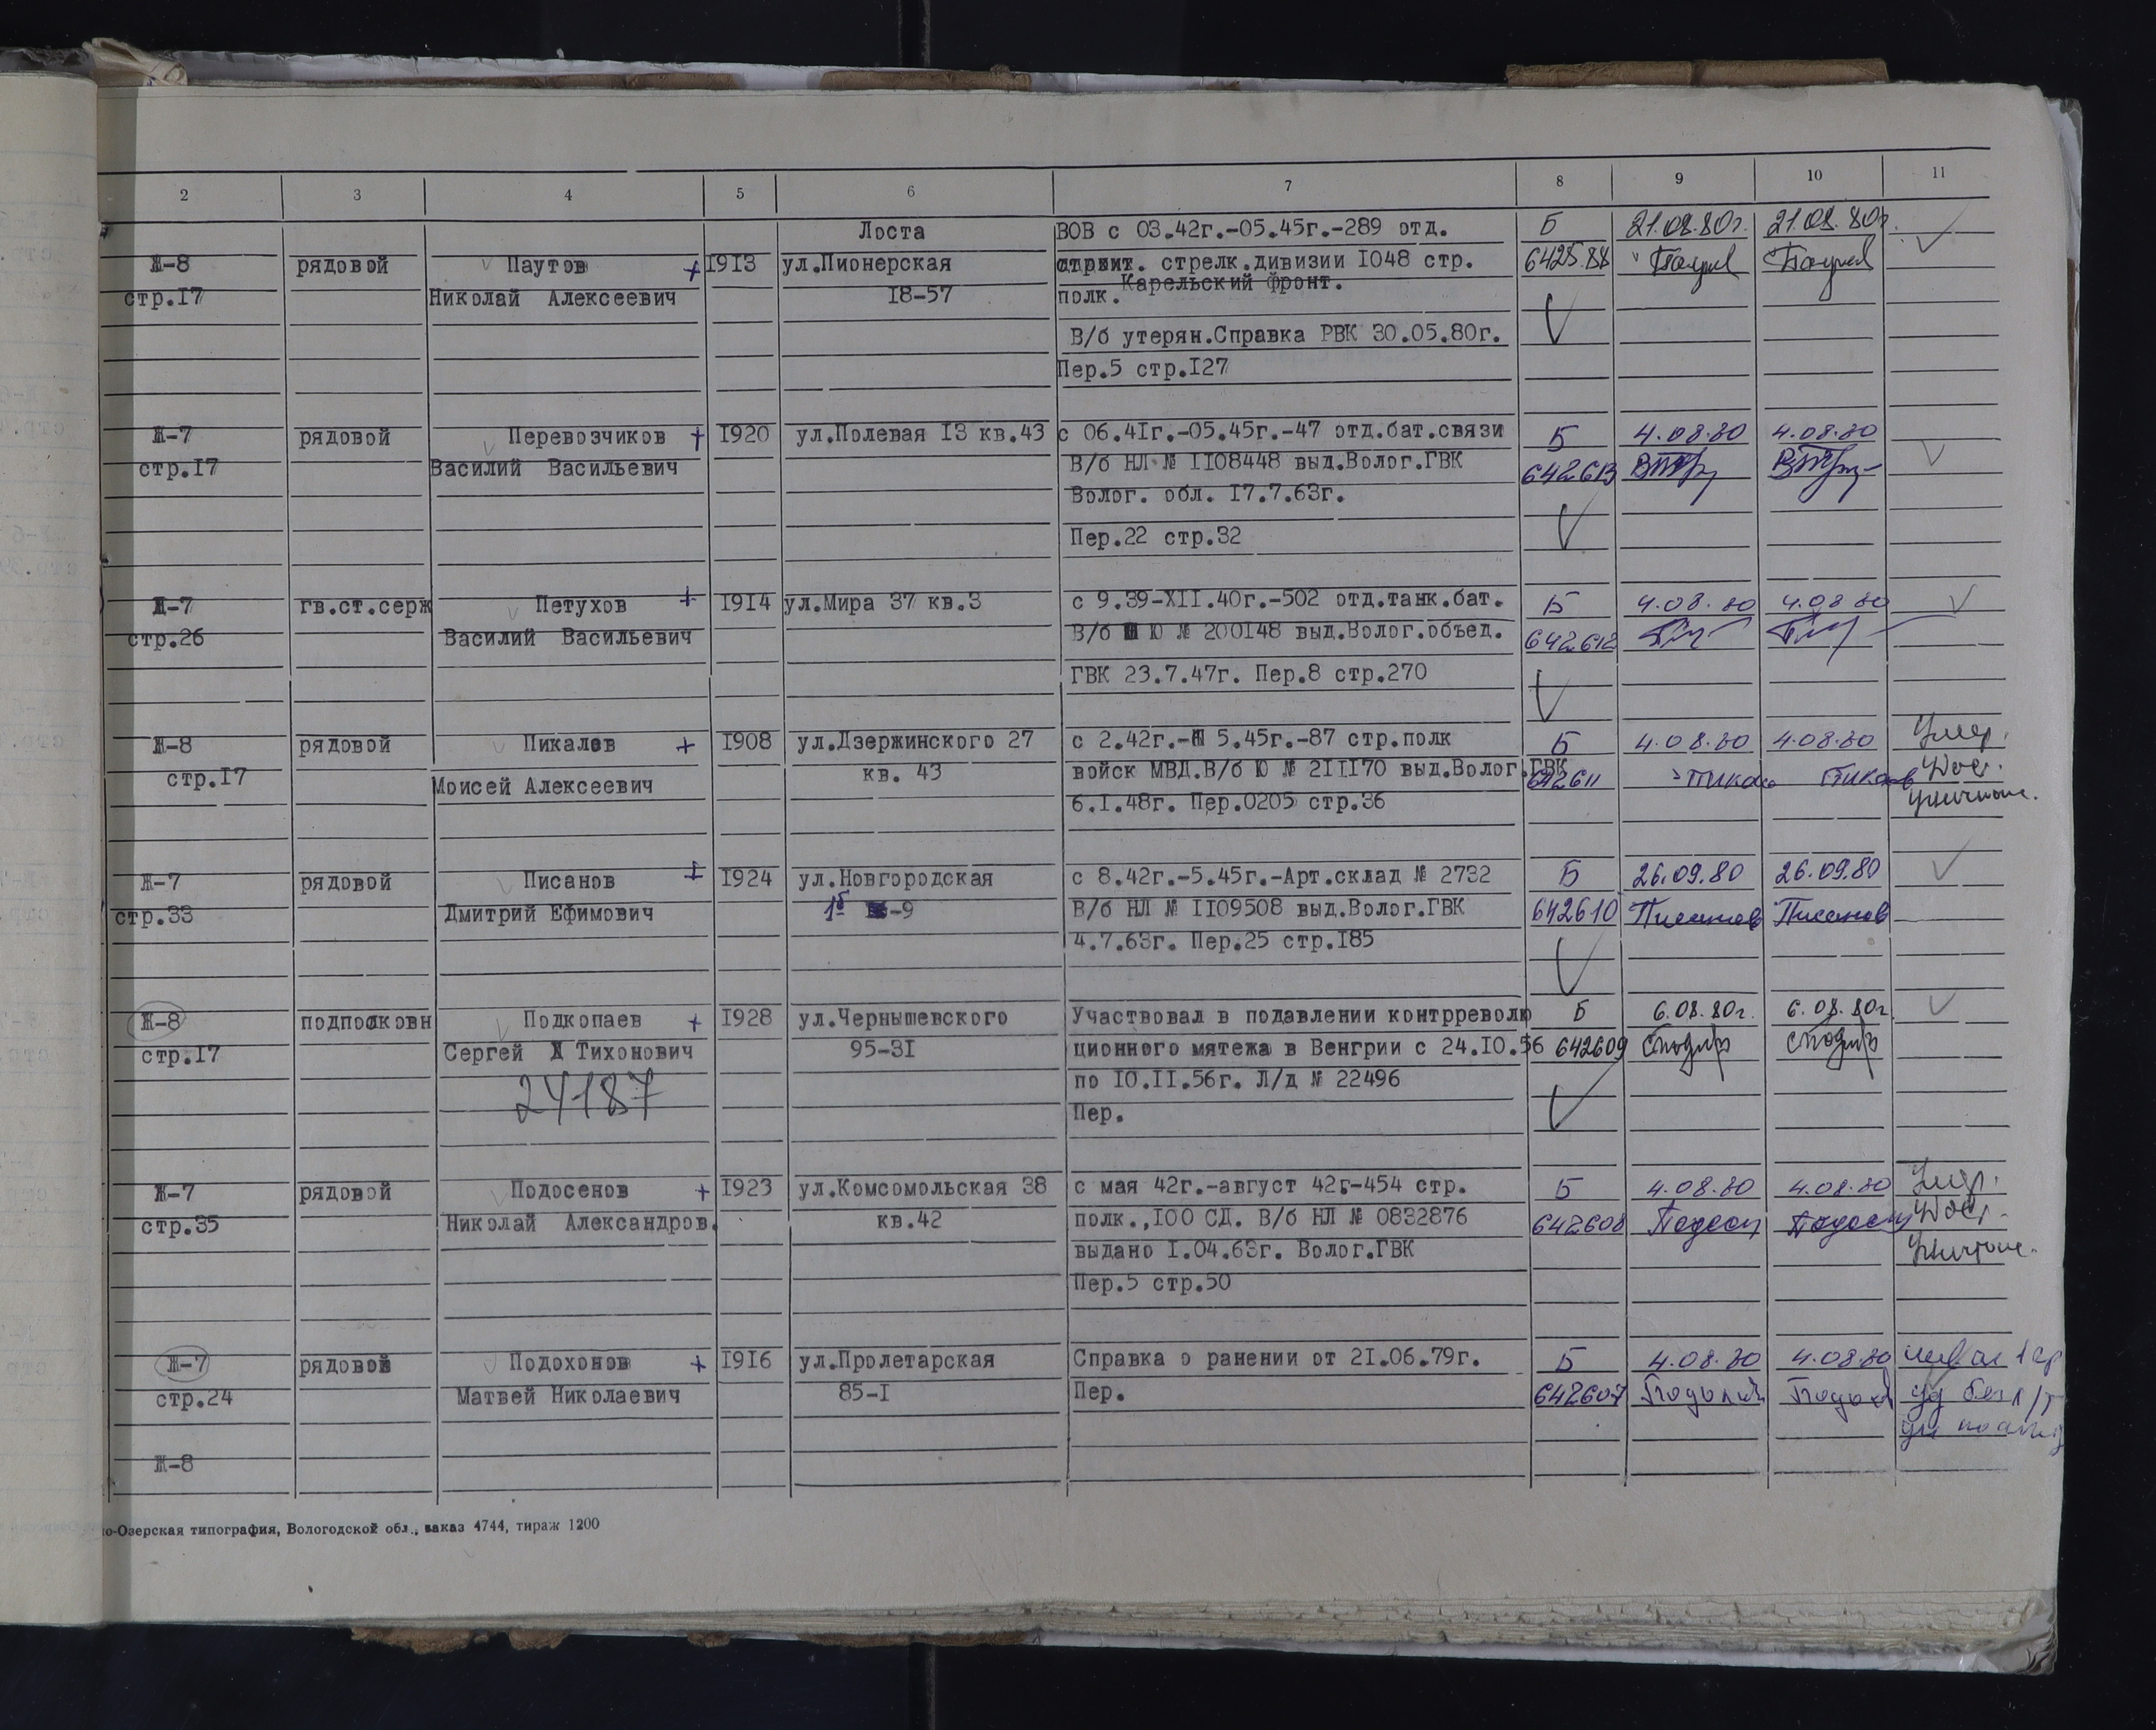 2 3 4 5 6 7 8 9 10 11
Лоста ВОВ с 03.42г.-05.45г.-289 отд. Б 21.08.80г. 21.08.80г.
Ж-8 рядовой Паутов + 1913 ул.Пионерская стрелк.дивизии 1048 стр. 642584
стр.17 Николай Алексеевич 18-57 полк. Карельский фронт.
В/б утерян.Справка РВК 30.05.80г.
Пер.5 стр.127
Ж-7 рядовой Перевозчиков + 1920 ул.Полевая 13 кв.43 с 06.41г.-05.45г.-47 отд.бат.связи Б 4.08.80 4.08.80
стр.17 Василий Васильевич В/б НЛ № 1108448 выд.Волог.ГВК 642613
Волог. обл. 17.7.63г.
Пер.22 стр.32
Ж-7 гв.ст.серж Петухов + 1914 ул.Мира 37 кв.3 с 9.39-XII.40г.-502 отд.танк.бат. Б 4.08.80 4.08.80
стр.26 Василий Васильевич В/б Ю № 200148 выд.Волог.объед. 642612
ГВК 23.7.47г. Пер.8 стр.270
Ж-8 рядовой Пикалев + 1908 ул.Дзержинского 27 с 2.42г.- 5.45г.-87 стр.полк Б 4.08.80 4.08.80 Умер.
стр.17 Моисей Алексеевич кв. 43 войск МВД.В/б Ю № 211170 выд.Волог.ГВК 642611 Док.
6.1.48г. Пер.0205 стр.36 уничтож.
Ж-7 рядовой Писанов + 1924 ул.Новгородская с 8.42г.-5.45г.-Арт.склад № 2732 Б 26.09.80 26.09.80
стр.33 Дмитрий Ефимович 1б -9 В/б НЛ № 1109508 выд.Волог.ГВК 642610 Писанов Писанов
4.7.63г. Пер.25 стр.185
Ж-8 подполковн Подкопаев + 1928 ул.Чернышевского Участвовал в подавлении контрреволю Б 6.08.80г. 6.08.80г.
стр.17 Сергей Тихонович 95-31 ционного мятежа в Венгрии с 24.10.56 642609
24187 по 10.11.56г. Л/д № 22496
Пер.
Ж-7 рядовой Подосенов + 1923 ул.Комсомольская 38 с мая 42г.-август 42г-454 стр. Б 4.08.80 4.08.80 Умер.
стр.35 Николай Александров. кв.42 полк.,100 СД. В/б НЛ № 0832876 642608 Док.
выдано 1.04.63г. Волог.ГВК уничтож.
Пер.5 стр.50
Ж-7 рядовой Подохонов + 1916 ул.Пролетарская Справка о ранении от 21.06.79г. Б 4.08.80 4.08.80
стр.24 Матвей Николаевич 85-1 Пер. 642607
Ж-8
о-Озерская типография, Вологодской обл., заказ 4744, тираж 1200